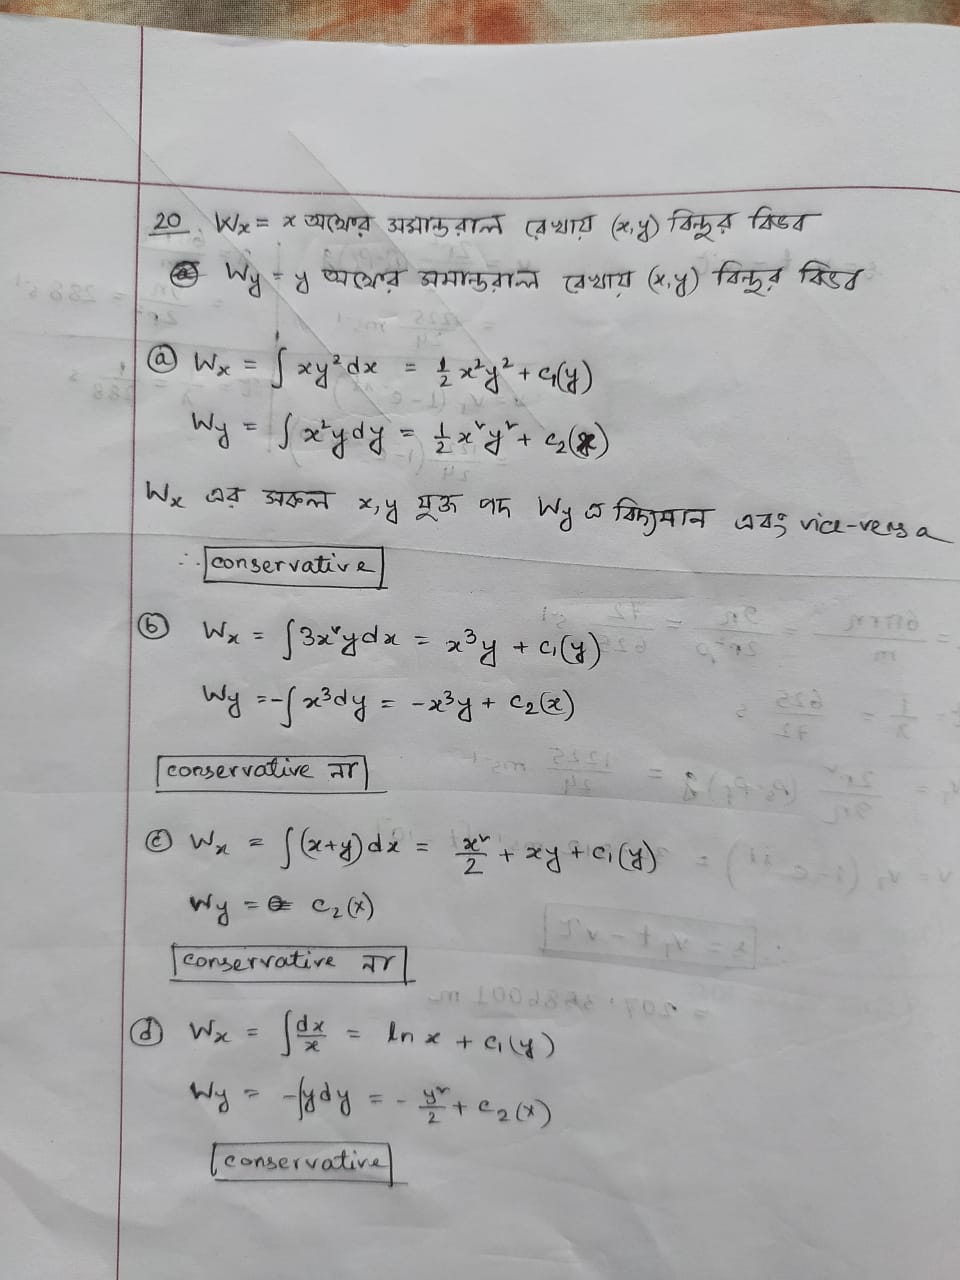 20. Wx = x অক্ষের সমান্তরাল রেখায় (x,y) বিন্দুর বিভব
Wy = y অক্ষের সমান্তরাল রেখায় (x,y) বিন্দুর বিভব
ⓐ Wx = ∫ xy²dx = ½ x²y² + c₁(y)
Wy = ∫ x²ydy = ½ x²y² + c₂(x)
Wx এর সকল x,y যুক্ত পদ Wy এ বিদ্যমান এবং vice-versa
∴ conservative
ⓑ Wx = ∫3x²ydx = x³y + c₁(y)
Wy = -∫x³dy = -x³y + c₂(x)
conservative না
ⓒ Wx = ∫(x+y)dx = x²/2 + xy + c₁(y)
Wy = c₂(x)
conservative না
ⓓ Wx = ∫dx/x = ln x + c₁(y)
Wy = -∫ydy = - y²/2 + c₂(x)
conservative